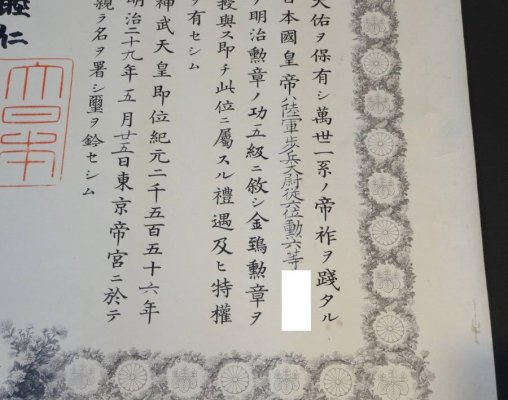 天佑ヲ保有シ萬世一系ノ帝祚ヲ踐タル
日本國皇帝ハ陸軍步兵大尉從位勲六等
ヲ明治勲章ノ功五級ニ敘シ金鵄勲章ヲ
授與ス即チ此位ニ屬スル禮遇及ヒ特權
ヲ有セシム
神武天皇即位紀元二千五百五十六年
明治二十九年五月廿五日東京帝宮ニ於テ
親ラ名ヲ署シ璽ヲ鈐セシム
睦仁
大日本